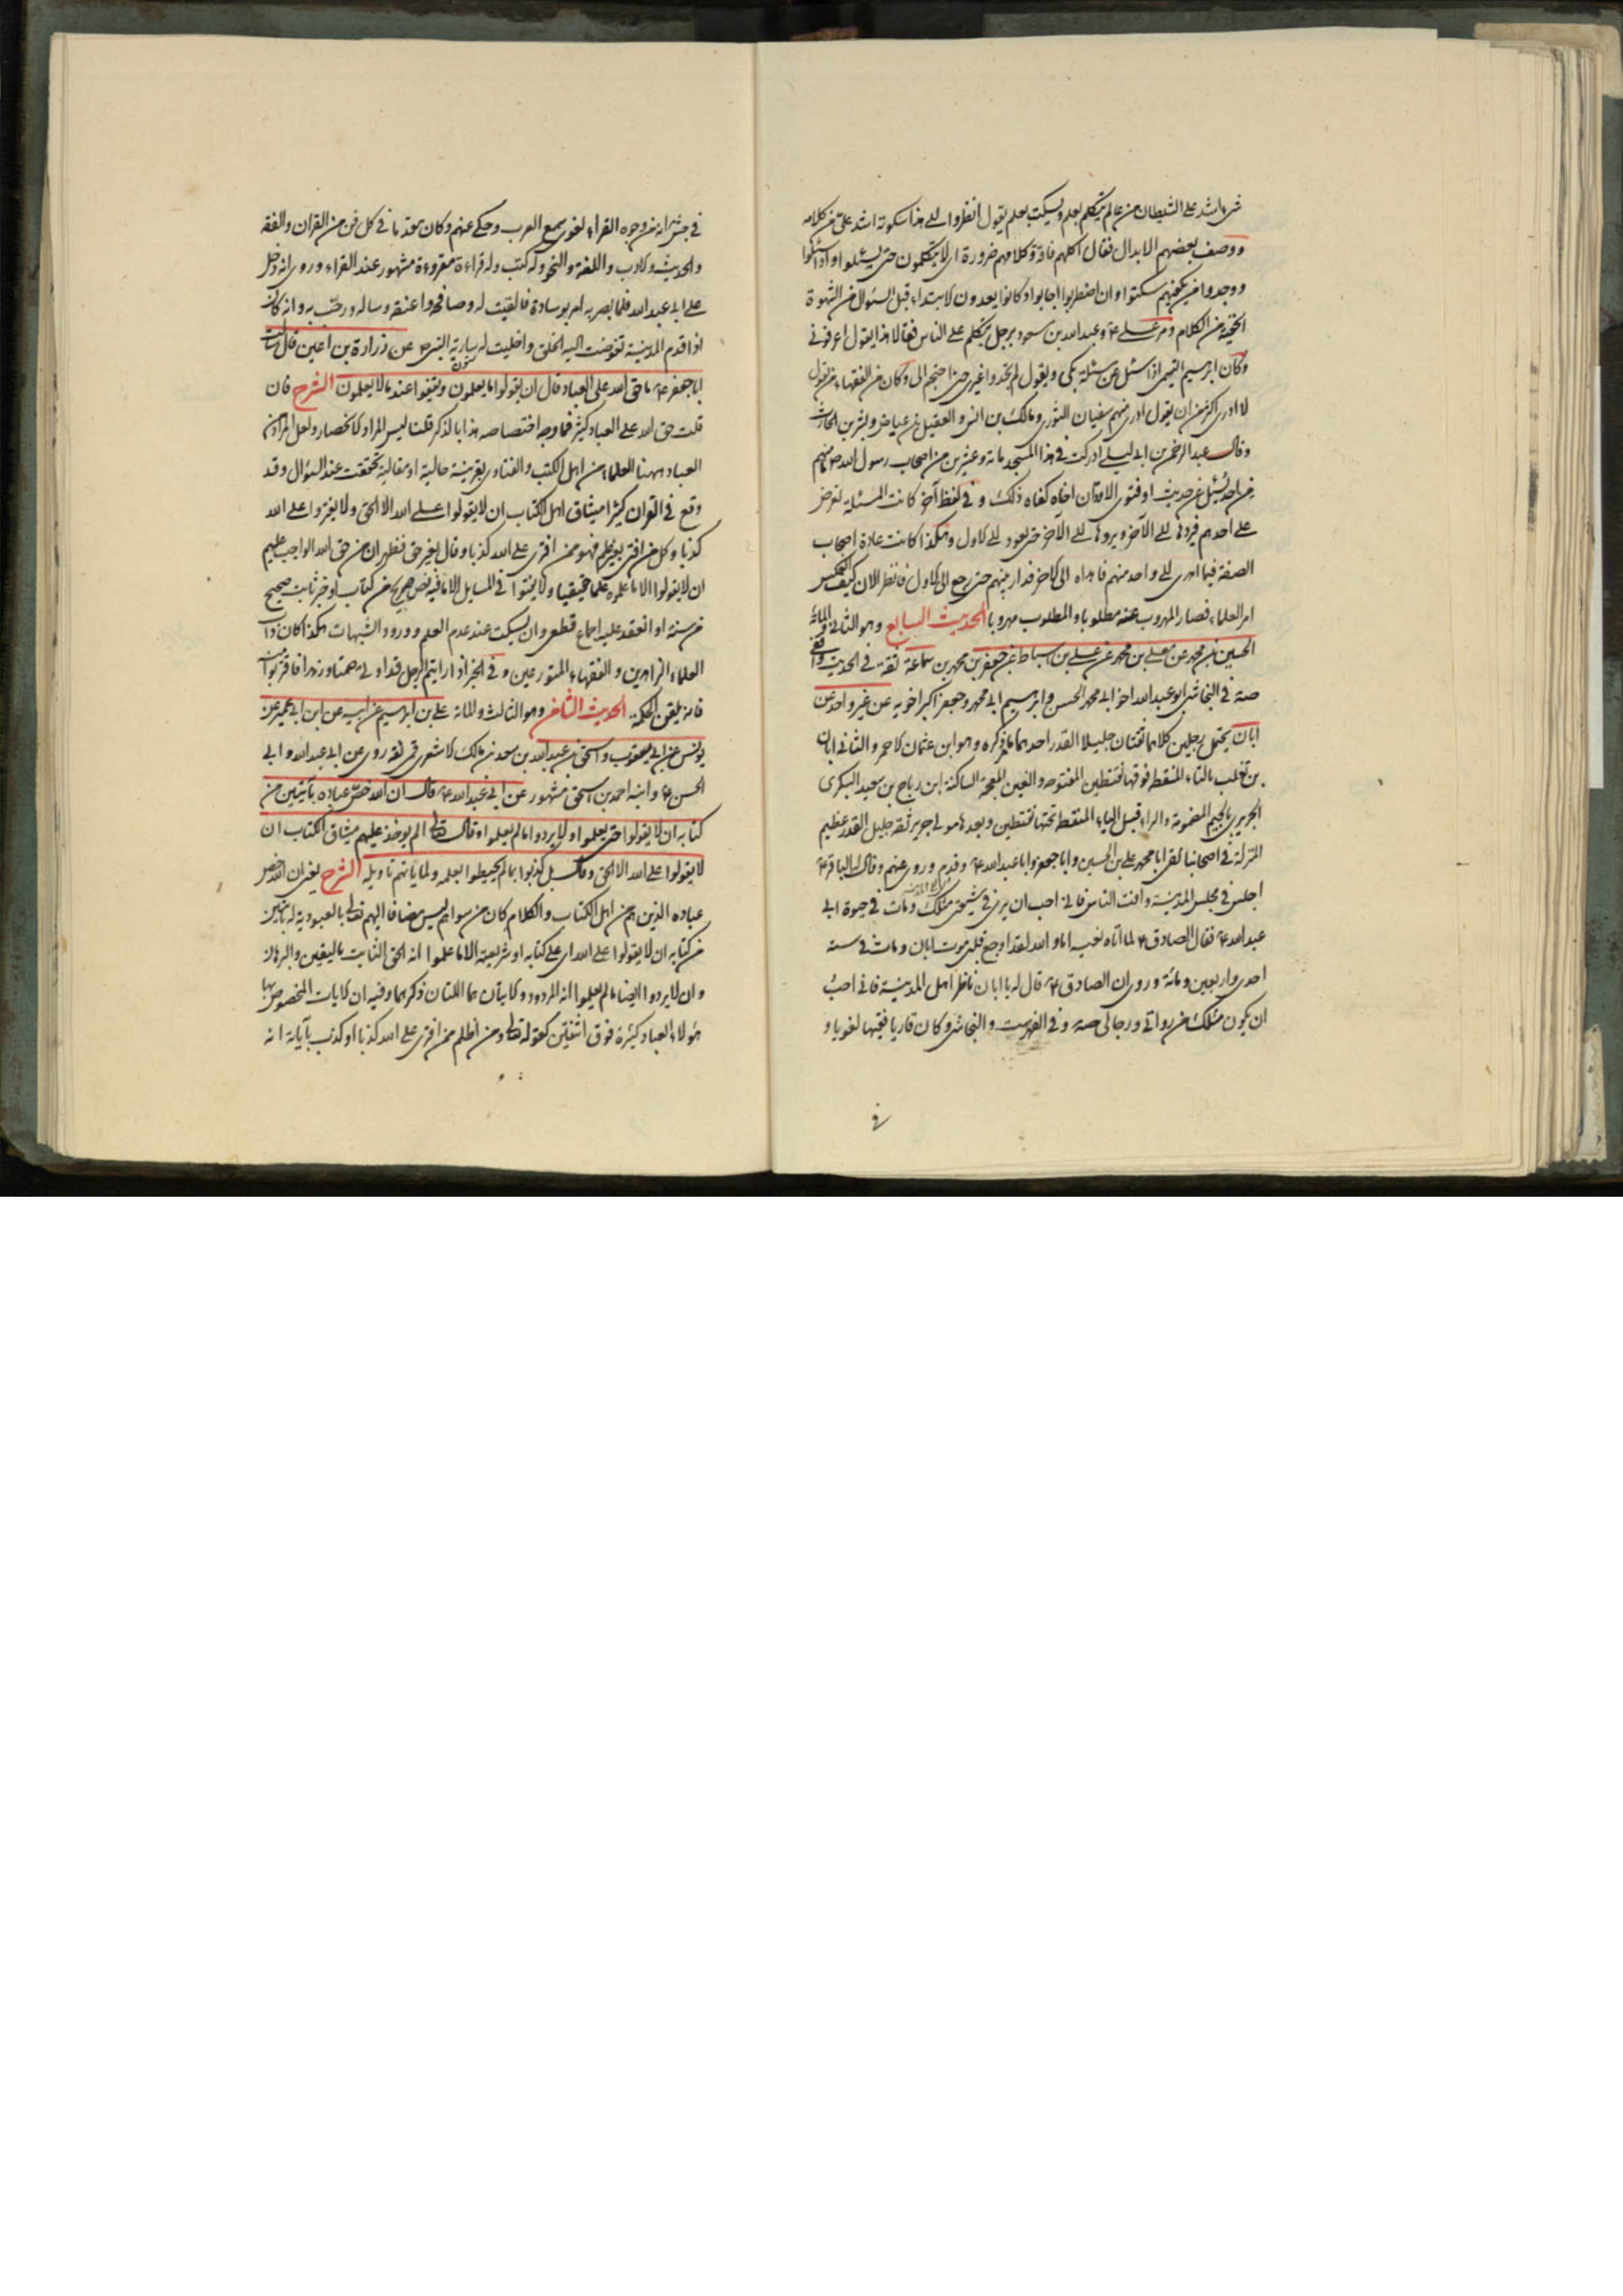 شئ اشد على الشيطان من عالم يتكلم بعلم ويسكت بعلم يقول انظروا الى هذا سكوته اشد علىّ من كلامه
ووصف بعضهم الابدال فقال اكلهم فاقة وكلامهم ضرورة اى لا يتكلمون حتى يسئلوا واذا سئلوا
ووجدوا من يكفيهم سكتوا وان اضطروا اجابوا وكانوا يعدون الابتداء قبل السئوال من الشهوة
الخفية من الكلام ومر على ع وعبد الله بن مسعود برجل يتكلم على الناس فقالا هذا يقول اعرفونى
وكان ابرهيم التيمى اذا سئل عن مسئلة بكى ويقول لم تجدوا غيرى حتى احتجتم الى وكان من الفقهاء من يقول
لا ادرى اكثر من ان يقول ادرى منهم سفيان الثورى ومالك بن انس والفضيل بن عياض وبشر بن الحارث
وقال عبد الرحمن بن ابى ليلى ادركت فى هذا المسجد مائة وعشرين من اصحاب رسول الله ص ما منهم
من احد يسئل عن حديث او فتوى الا ود ان اخاه كفاه ذلك وفى لفظ آخر كانت المسئلة تعرض
على احدهم فيردها الى الآخر ويردها الى الآخر حتى تعود الى الاول وهكذا كانت عادة اصحاب
الصفة فيما اهدى الى واحد منهم فاهداه الى الاخر فدار بينهم حتى رجع الى الاول فانظر الان كيف انعكس
امر العلماء فصار المهروب عنه مطلوبا والمطلوب مهروبا الحديث السابع وهو الثانى والمائة
الحسين بن محمد عن معلى بن محمد عن على بن اسباط عن جعفر بن محمد بن سماعة ثقة فى الحديث واقفى
صه فى النجاشى ابو عبد الله اخو ابى محمد الحسن وابرهيم ابى محمد وجعفر اكبر اخويه عن غير واحد عن
ابان يحتمل رجلين كلاهما ثقتان جليلا القدر احدهما ما مر ذكره وهو ابن عثمان الاحمر والثانى ابان
بن تغلب بالتاء المنقط فوقها نقطتين المفتوحه والغين المعجمة الساكنة ابن رباح بن سعيد البكرى
الجريرى بالجيم المضمومة والراء قبل الياء المنقط تحتها نقطتين وبعدها مولى جرير ثقة جليل القدر عظيم
المنزلة فى اصحابنا لقى ابا محمد على بن الحسين وابا جعفر وابا عبد الله ع وقدم وروى عنهم وقال له الباقر ع
اجلس فى مجلس المدينة وافت الناس فانى احب ان يرى فى شيعتى مثلك ومات فى حيوة ابى
عبد الله ع فقال الصادق ع لما اتاه نعيه اما والله لقد اوجع قلبى موت ابان ومات فى سنة
احدى واربعين ومائة وروى ان الصادق ع قال له يا ابان ناظر اهل المدينة فانى احب
ان يكون مثلك من رواتى ورجالى صه وفى الفهرست والنجاشى وكان قاريا فقيها لغويا و
فى
فى جش انه من وجوه القراء لغوى سمع العرب وحكى عنهم وكان مقدما فى كل فن من القران والفقه
والحديث والادب واللغة والنحو وله كتب وله قراءة مفردة مشهور عند القراء وروى انه دخل
على ابى عبد الله فلما بصر به امر بوسادة فالقيت له وصافحه واعتنقه وساله ورحب به وانه كان
اذا قدم المدينة تقوضت اليه الخلق واخليت له سارية النبى ص عن زرارة بن اعين قال سالت
ابا جعفر ع ما حق الله على العباد قال ان يقولوا ما يعلمون ويقفوا عند ما لا يعلمون الشرح فان
قلت حق الله على العباد كثير فما وجه اختصاصه هذا بالذكر قلت ليس المراد الانحصار ولعل المراد من
العباد ههنا العلماء من اهل الكتب والفتاوى بقرينة حالية او مقالية تحققت عند السؤال وقد
وقع فى القران كثيرا ميثاق اهل الكتاب ان لا يقولوا على الله الا الحق ولا يفتروا على الله
كذبا وكل من افتى بغير علم فهو ممن افترى على الله كذبا وقال بغير حق فظهر ان من حق الله الواجب عليهم
ان لا يقولوا الا ما علموه علما حقيقيا ولا يفتوا فى المسايل الا ما فيه نص صريح من كتاب او خبر ثابت صحيح
من سنة او انعقد عليه اجماع قطعى وان يسكت عند عدم العلم وورود الشبهات هكذا كان داب
العلماء الزاهدين والفقهاء المتورعين وفى الخبر اذا رايتم الرجل قد اوتى صمتا وزهدا فاقتربوا منه
فانه يلقن الحكمة الحديث الثامن وهو الثالث والمائة على بن ابرهيم عن ابيه عن ابن ابى عمير عن
يونس عن ابى يعقوب واسحق بن عبد الله بن سعد بن مالك الاشعرى قمى ثقة روى عن ابى عبد الله وابى
الحسن ع وابنه احمد بن اسحق مشهور عن ابى عبد الله ع قال ان الله خص عباده بآيتين من
كتابه ان لا يقولوا حتى يعلموا ولا يردوا ما لم يعلموا وقال تعالى الم يؤخذ عليهم ميثاق الكتاب ان
لا يقولوا على الله الا الحق وقال بل كذبوا بما لم يحيطوا بعلمه ولما ياتهم تاويله الشرح يعنى ان الله خص
عباده الذين هم من اهل الكتاب والكلام كان من سواهم ليس مضافا اليهم تعالى بالعبودية له بآيتين
من كتابه ان لا يقولوا على الله اى على كتابه او شريعته الا ما علموا انه الحق الثابت باليقين والبرهان
وان لا يردوا ايضا ما لم يعلموا انه المردود والايتان هما اللتان ذكرهما وفيه ان الايات المخصوص بها
هؤلاء العباد كثيرة فوق اثنتين كقوله تعالى ومن اظلم ممن افترى على الله كذبا او كذب بآياته انه